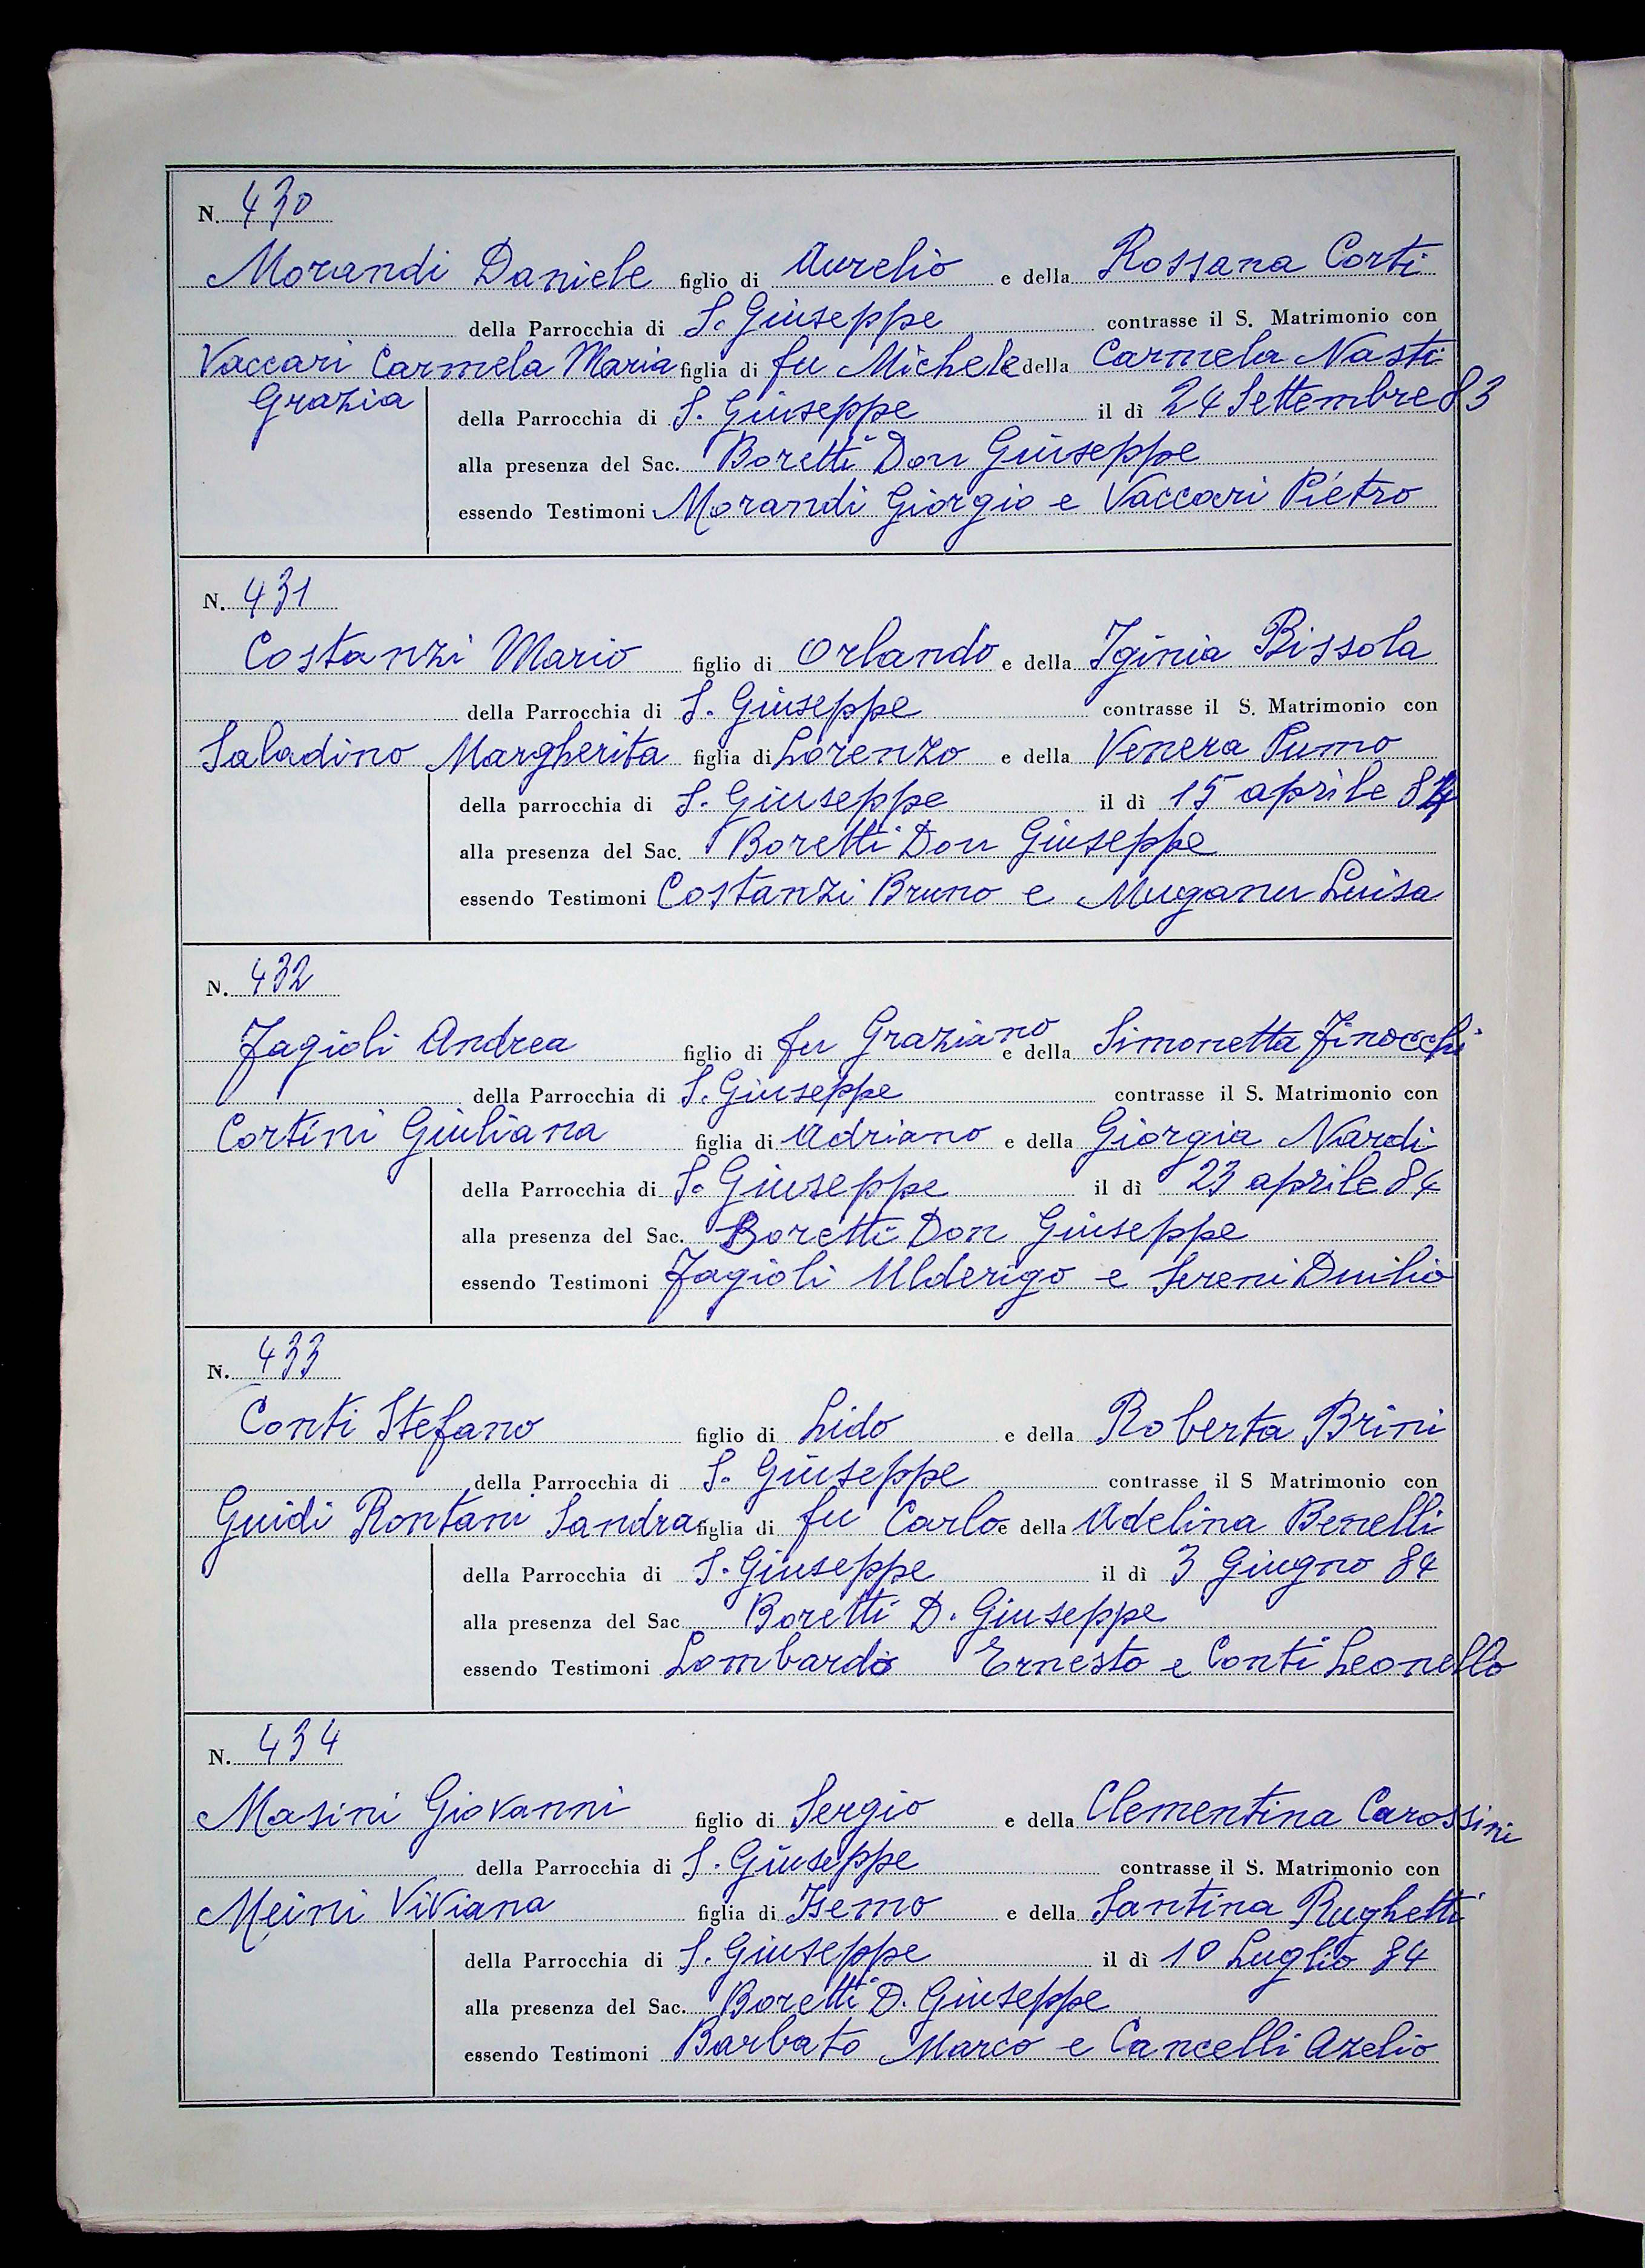 N. 430
Morandi Daniele figlio di Aurelio e della Rossana Corti
della Parrocchia di S. Giuseppe contrasse il S. Matrimonio con
Vaccari Carmela Maria figlia di fu Michele della Carmela Nasti
Grazia della Parrocchia di S. Giuseppe il dì 24 Settembre 83
alla presenza del Sac. Boretti Don Giuseppe
essendo Testimoni Morandi Giorgio e Vaccari Pietro
N. 431
Costanzi Mario figlio di Orlando e della Iginia Bissola
della Parrocchia di S. Giuseppe contrasse il S. Matrimonio con
Saladino Margherita figlia di Lorenzo e della Venera Pumo
della parrocchia di S. Giuseppe il dì 15 aprile 84
alla presenza del Sac. Boretti Don Giuseppe
essendo Testimoni Costanzi Bruno e Muganu Luisa
N. 432
Fagioli Andrea figlio di fu Graziano e della Simonetta Finocchi
della Parrocchia di S. Giuseppe contrasse il S. Matrimonio con
Cortini Giuliana figlia di Adriano e della Giorgia Nardi
della Parrocchia di S. Giuseppe il dì 23 aprile 84
alla presenza del Sac. Boretti Don Giuseppe
essendo Testimoni Fagioli Ulderigo e Sereni Duilio
N. 433
Conti Stefano figlio di Lido e della Roberta Brini
della Parrocchia di S. Giuseppe contrasse il S Matrimonio con
Guidi Rontani Sandra figlia di fu Carlo e della Adelina Benelli
della Parrocchia di S. Giuseppe il dì 3 Giugno 84
alla presenza del Sac Boretti D. Giuseppe
essendo Testimoni Lombardo Ernesto e Conti Leonello
N. 434
Masini Giovanni figlio di Sergio e della Clementina Carossini
della Parrocchia di S. Giuseppe contrasse il S. Matrimonio con
Meini Viviana figlia di Isemo e della Santina Rughetti
della Parrocchia di S. Giuseppe il dì 10 Luglio 84
alla presenza del Sac. Boretti D. Giuseppe
essendo Testimoni Barbato Marco e Cancelli Azelio